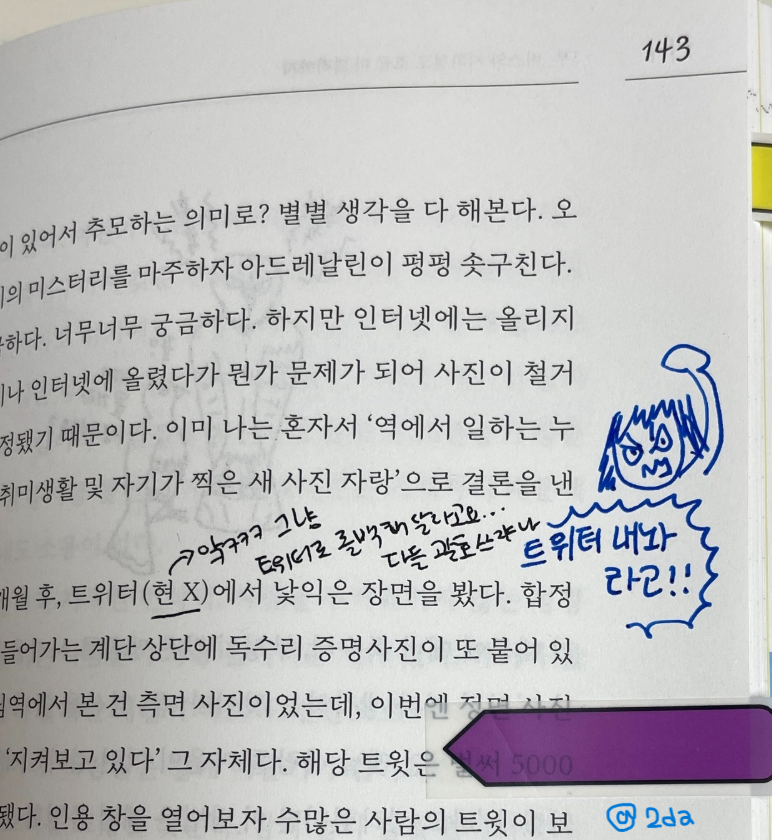 143
이 있어서 추모하는 의미로? 별별 생각을 다 해본다. 오
의 미스터리를 마주하자 아드레날린이 펑펑 솟구친다.
하다. 너무너무 궁금하다. 하지만 인터넷에는 올리지
나 인터넷에 올렸다가 뭔가 문제가 되어 사진이 철거
정됐기 때문이다. 이미 나는 혼자서 ‘역에서 일하는 누
취미생활 및 자기가 찍은 새 사진 자랑’으로 결론을 낸
→악ㅋㅋㅋ 그냥
트위터로 롤백해 달라고요...
다들 괄호 쓰잖아
트위터 내놔
라고!!
개월 후, 트위터(현 X)에서 낯익은 장면을 봤다. 합정
들어가는 계단 상단에 독수리 증명사진이 또 붙어 있
역에서 본 건 측면 사진이었는데, 이번엔 정면 사진
‘지켜보고 있다’ 그 자체다. 해당 트윗은 벌써 5000
됐다. 인용 창을 열어보자 수많은 사람의 트윗이 보
@2da